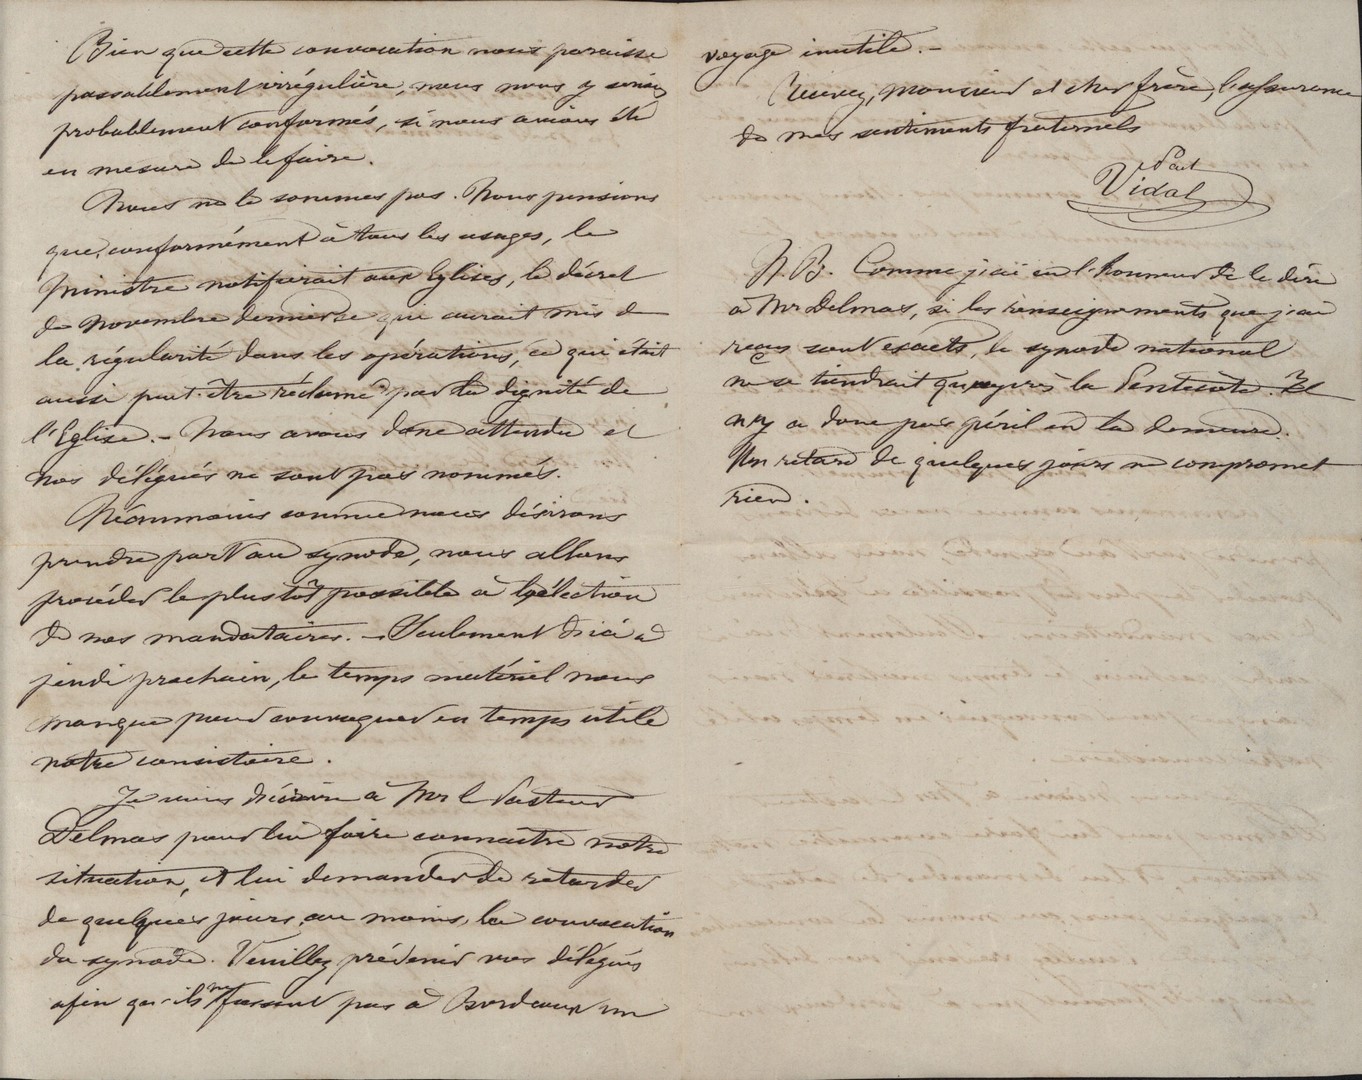 Bien que cette convocation nous paraisse
passablement irrégulière, nous nous y serions
probablement conformés, si nous avions été
en mesure de le faire.
Nous ne le sommes pas. Nous pensions
que, conformément à tous les usages, le
ministre notifierait aux Eglises, le décret
de Novembre dernier ce que aurait mis de
la régularité dans les opérations, ce qui était
aussi peut-être réclamé par la dignité de
l'Eglise. - Nous avons donc attendu et
nos délégués ne sont pas nommés.
Néanmoins comme nous désirons
prendre part au synode, nous allons
procéder le plus tôt possible à l'élection
de nos mandataires. - Seulement d'ici à
jeudi prochain, le temps matériel nous
manque pour convoquer en temps utile
notre consistoire.
Je viens d'écrire à Mr le Pasteur
Delmas pour lui faire connaitre notre
situation, et lui demander de retarder
de quelques jours, au moins, la convocation
du synode. Veuillez prévenir vos délégués
afin qu'ils ne fassent pas à Bordeaux un
voyage inutile. -
Recevez, Monsieur et cher frère, l'assurance
de mes sentiments fraternels
Vidal
N.B. Comme j'ai eu l'honneur de le dire
à Mr Delmas, si les renseignements que j'ai
reçus sont exacts, le synode national
ne se tiendrait qu'après la Pentecôte. Il
n'y a donc pas péril en la demeure.
Un retard de quelques jours ne compromet
rien.